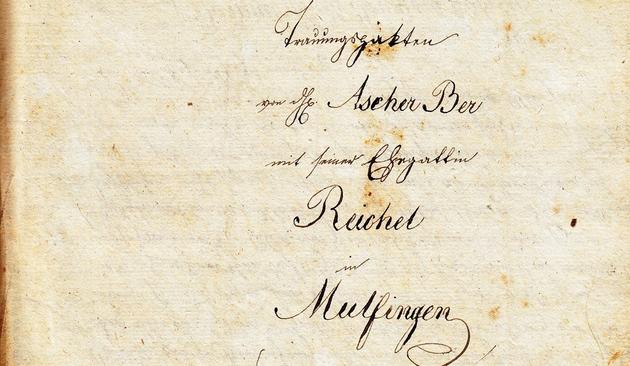 Trauungspakten
von
Ascher Ber
mit seiner Ehegattin
Reichel
in
Mulfingen